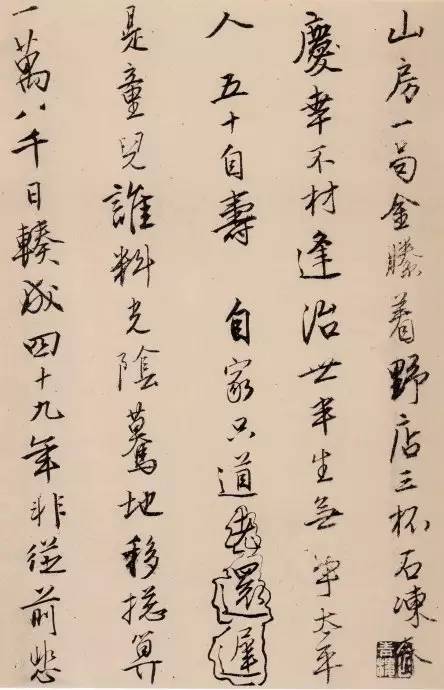 山房一局金縢着野店三杯石凍春
慶幸不材逢治世半生無事太平
人 五十自壽 自家只道老還遲
是童兒誰料光陰驀地移摠算
一萬八千日輳成四十九年非從前悲